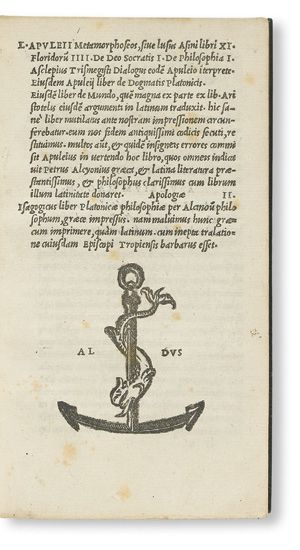 L. APVLEII Metamorphoseos, siue lusus Asini libri XI.
Floridorũ IIII. De Deo Socratis I. De Philosophia I.
Asclepius Trismegisti Dialogus eodẽ Apuleio iterprete.
Eiusdem Apuleij liber de Dogmatis Platonicis.
Eiusdẽ liber de Mundo, quẽ magna ex parte ex lib. Ari
stotelis eiusdẽ argumenti in latinum traduxit. hic sa⸗
nè liber mutilatus ante nostram impressionem circun⸗
ferebatur. eum nos fidem antiquissimi codicis secuti, re⸗
stituimus. multos aut, & quidẽ insigneis errores commi
sit Apuleius in vertendo hoc libro, quos omneis indica
uit Petrus Alcyonius græca, & latina literatura præ⸗
stantissimus, & philosophus clarissimus cum librum
illum latinitate donaret. Apologiæ II.
Isagogicus liber Platonicæ philosophiæ per Alcinoũ philo
sophum, græce impressus. nam maluimus hunc græ⸗
cum imprimere, quàm latinum. cum inepta tralatio⸗
ne cuiusdam Episcopi Tropiensis barbarus esset.
AL DVS